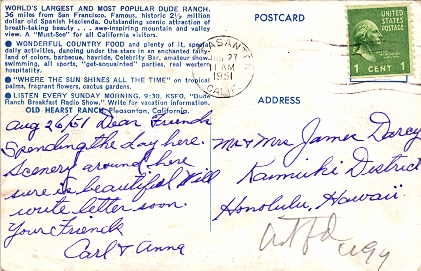 WORLD'S LARGEST AND MOST POPULAR DUDE RANCH.
36 miles from San Francisco. Famous, historic 2½ million
dollar old Spanish Hacienda. Outstanding scenic attraction of
breath-taking beauty . . . awe-inspiring mountain and valley
view. A "Must-See" for all California visitors.
WONDERFUL COUNTRY FOOD and plenty of it, special
daily activities, dancing under the stars in an enchanted fairy-
land of colors, barbecue, hayride, Celebrity Bar, amateur show,
swimming, all sports, "get-acquainted" parties, real western
hospitality.
"WHERE THE SUN SHINES ALL THE TIME" on tropical
palms, fragrant flowers, cactus gardens.
LISTEN EVERY SUNDAY MORNING, 9:30, KSFO, "Dude
Ranch Breakfast Radio Show." Write for vacation information.
OLD HEARST RANCH Pleasanton, California.
POSTCARD
PLEASANTON
AUG 27
AM
1951
CALIF.
UNITED STATES
POSTAGE
1 CENT 1
ADDRESS
Aug 26/51 Dear Friends
Spending the day here.
Scenery around here
sure is beautiful Will
write letter soon.
Your Friends
Carl & Anna
Mr & Mrs James Darcy
Kaimuki District
Honolulu, Hawaii